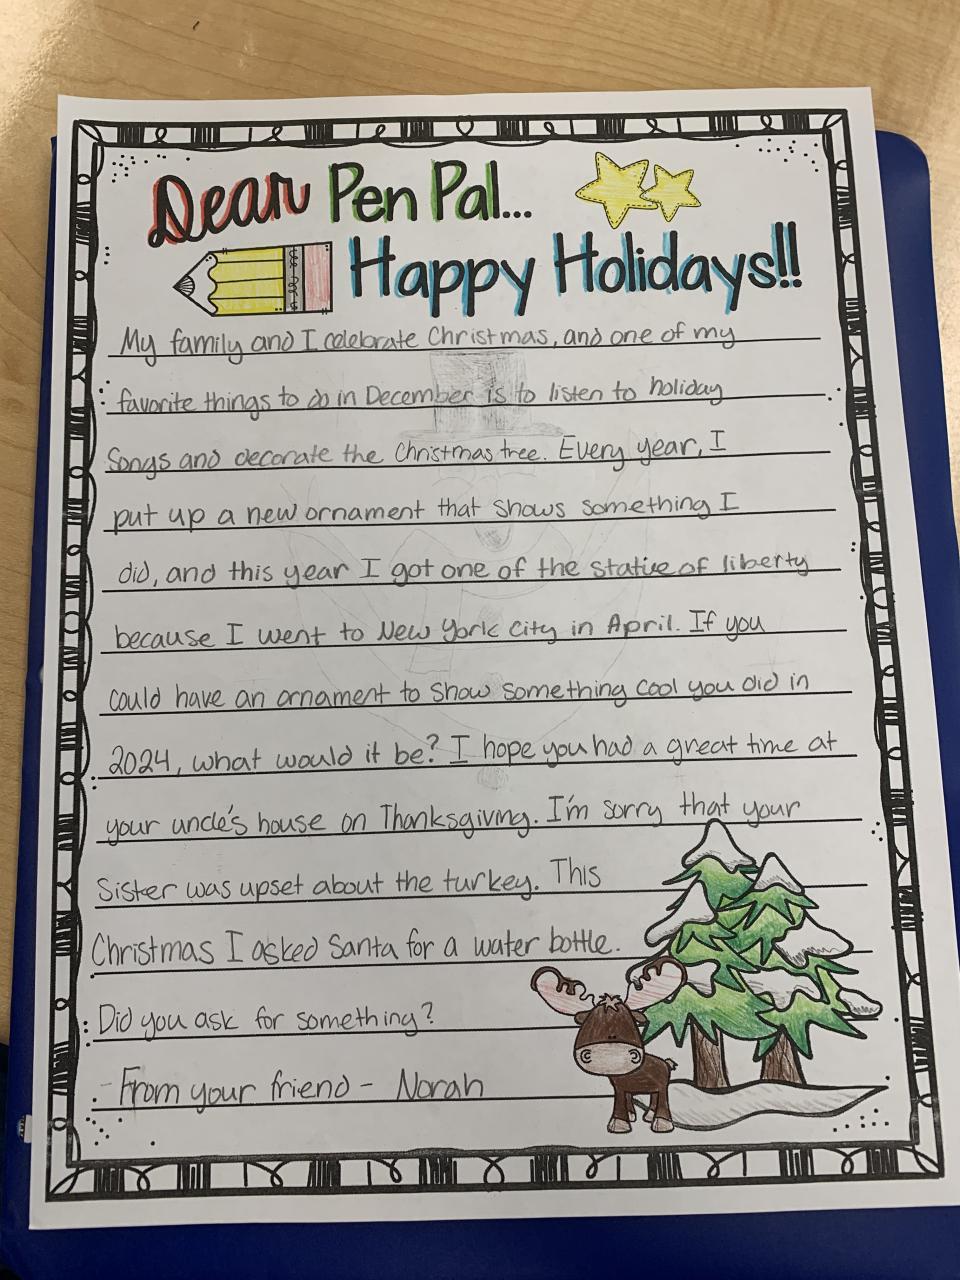 Dear Pen Pal...
Happy Holidays!!
My family and I celebrate Christmas, and one of my
favorite things to do in December is to listen to holiday
Songs and decorate the Christmas tree. Every year, I
put up a new ornament that shows something I
did, and this year I got one of the statue of liberty
because I went to New York City in April. If you
could have an ornament to show something cool you did in
2024, what would it be? I hope you had a great time at
your uncle's house on Thanksgiving. I'm sorry that your
Sister was upset about the turkey. This
Christmas I asked Santa for a water bottle.
Did you ask for something?
- From your friend - Norah